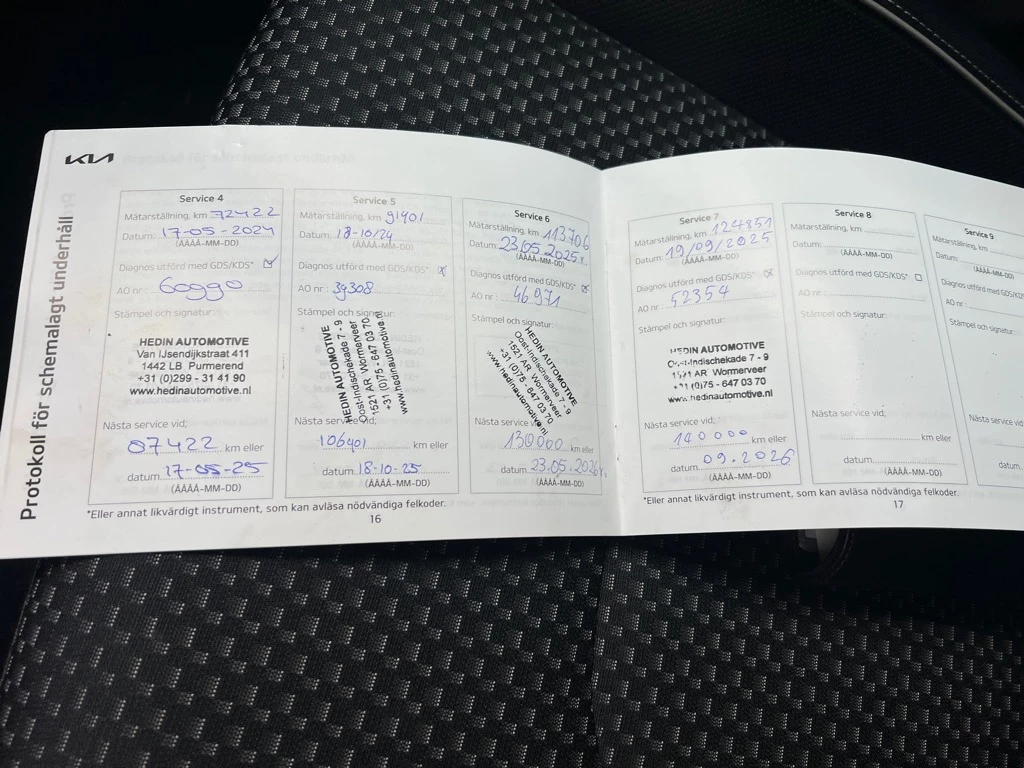 KIA
Protokoll för schemalagt underhåll
Service 4
Mätarställning, km 72422
Datum: 17-05-2024
(ÅÅÅÅ-MM-DD)
Diagnos utförd med GDS/KDS*
AO nr: 60990
Stämpel och signatur:
HEDIN AUTOMOTIVE
Van IJsendijkstraat 411
1442 LB Purmerend
+31 (0)299 - 31 41 90
www.hedinautomotive.nl
Nästa service vid;
87422 km eller
datum 17-05-25
(ÅÅÅÅ-MM-DD)
Service 5
Mätarställning, km 91401
Datum: 18-10/24
(ÅÅÅÅ-MM-DD)
Diagnos utförd med GDS/KDS*
AO nr: 39308
Stämpel och signatur:
HEDIN AUTOMOTIVE
Oost-Indischekade 7 - 9
1521 AR Wormerveer
+31 (0)75 - 647 03 70
www.hedinautomotive.nl
Nästa service vid;
106401 km eller
datum 18-10-25
(ÅÅÅÅ-MM-DD)
Service 6
Mätarställning, km 113706
Datum: 23.05.2025
(ÅÅÅÅ-MM-DD)
Diagnos utförd med GDS/KDS*
AO nr: 46971
Stämpel och signatur:
HEDIN AUTOMOTIVE
Oost-Indischekade 7 - 9
1521 AR Wormerveer
+31 (0)75 - 647 03 70
www.hedinautomotive.nl
Nästa service vid
130000 km eller
datum. 23.05.2026
(ÅÅÅÅ-MM-DD)
*Eller annat likvärdigt instrument, som kan avläsa nödvändiga felkoder.
16
Service 7
Mätarställning, km 124851
Datum: 19/09/2025
(ÅÅÅÅ-MM-DD)
Diagnos utförd med GDS/KDS*
AO nr: 52354
Stämpel och signatur:
HEDIN AUTOMOTIVE
Oost-Indischekade 7 - 9
1521 AR Wormerveer
+31 (0)75 - 647 03 70
www.hedinautomotive.nl
Nästa service vid;
140000 km eller
datum 09.2026
(ÅÅÅÅ-MM-DD)
Service 8
Mätarställning, km
Datum:
(ÅÅÅÅ-MM-DD)
Diagnos utförd med GDS/KDS*
AO nr:
Stämpel och signatur:
Nästa service vid;
km eller
datum
(ÅÅÅÅ-MM-DD)
Service 9
Mätarställning, km
Datum:
(ÅÅÅÅ-MM-DD)
Diagnos utförd med GDS/KDS
AO nr:
Stämpel och signatur:
Nästa service vid
datum
*Eller annat likvärdigt instrument, som kan avläsa nödvändiga felkoder.
17